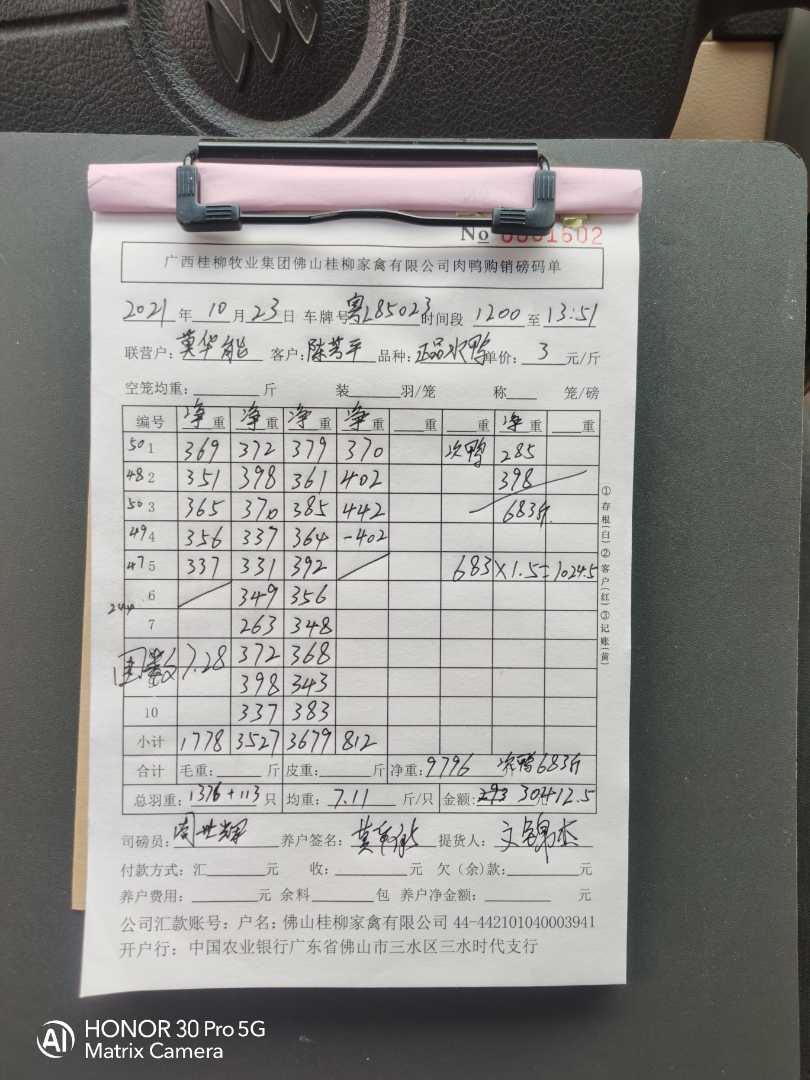 No 0001602
广西桂柳牧业集团佛山桂柳家禽有限公司肉鸭购销磅码单
2021 年 10 月 23 日 车牌号 粤L85023 时间段 1200 至 13:51
联营户: 莫华能 客户: 陈芳平 品种: 正品水鸭 单价: 3 元/斤
空笼均重: 斤 装 羽/笼 称 笼/磅
编号 净重 净重 净重 净重 重 重 净重 重
50 1 369 372 379 370 次鸭 285
48 2 351 398 361 402 398
50 3 365 370 385 442 683斤
49 4 356 337 364 -402
47 5 337 331 392 683 × 1.5 = 1024.5
6 349 356
244
7 263 348
7.28 372 368
398 343
10 337 383
小计 1778 3527 3679 812
合计 毛重: 斤 皮重: 斤 净重: 9796 次鸭683斤
总羽重: 1376 + 113 只 均重: 7.11 斤/只 金额: 30412.5
司磅员: 周世辉 养户签名: 莫华能 提货人: 文锦杰
付款方式: 汇 元 收: 元 欠(余)款: 元
养户费用: 元 余料 包 养户净金额: 元
公司汇款账号: 户名: 佛山桂柳家禽有限公司 44-442101040003941
开户行: 中国农业银行广东省佛山市三水区三水时代支行
①存根(白)②客户(红)③记账(黄)
HONOR 30 Pro 5G
Matrix Camera